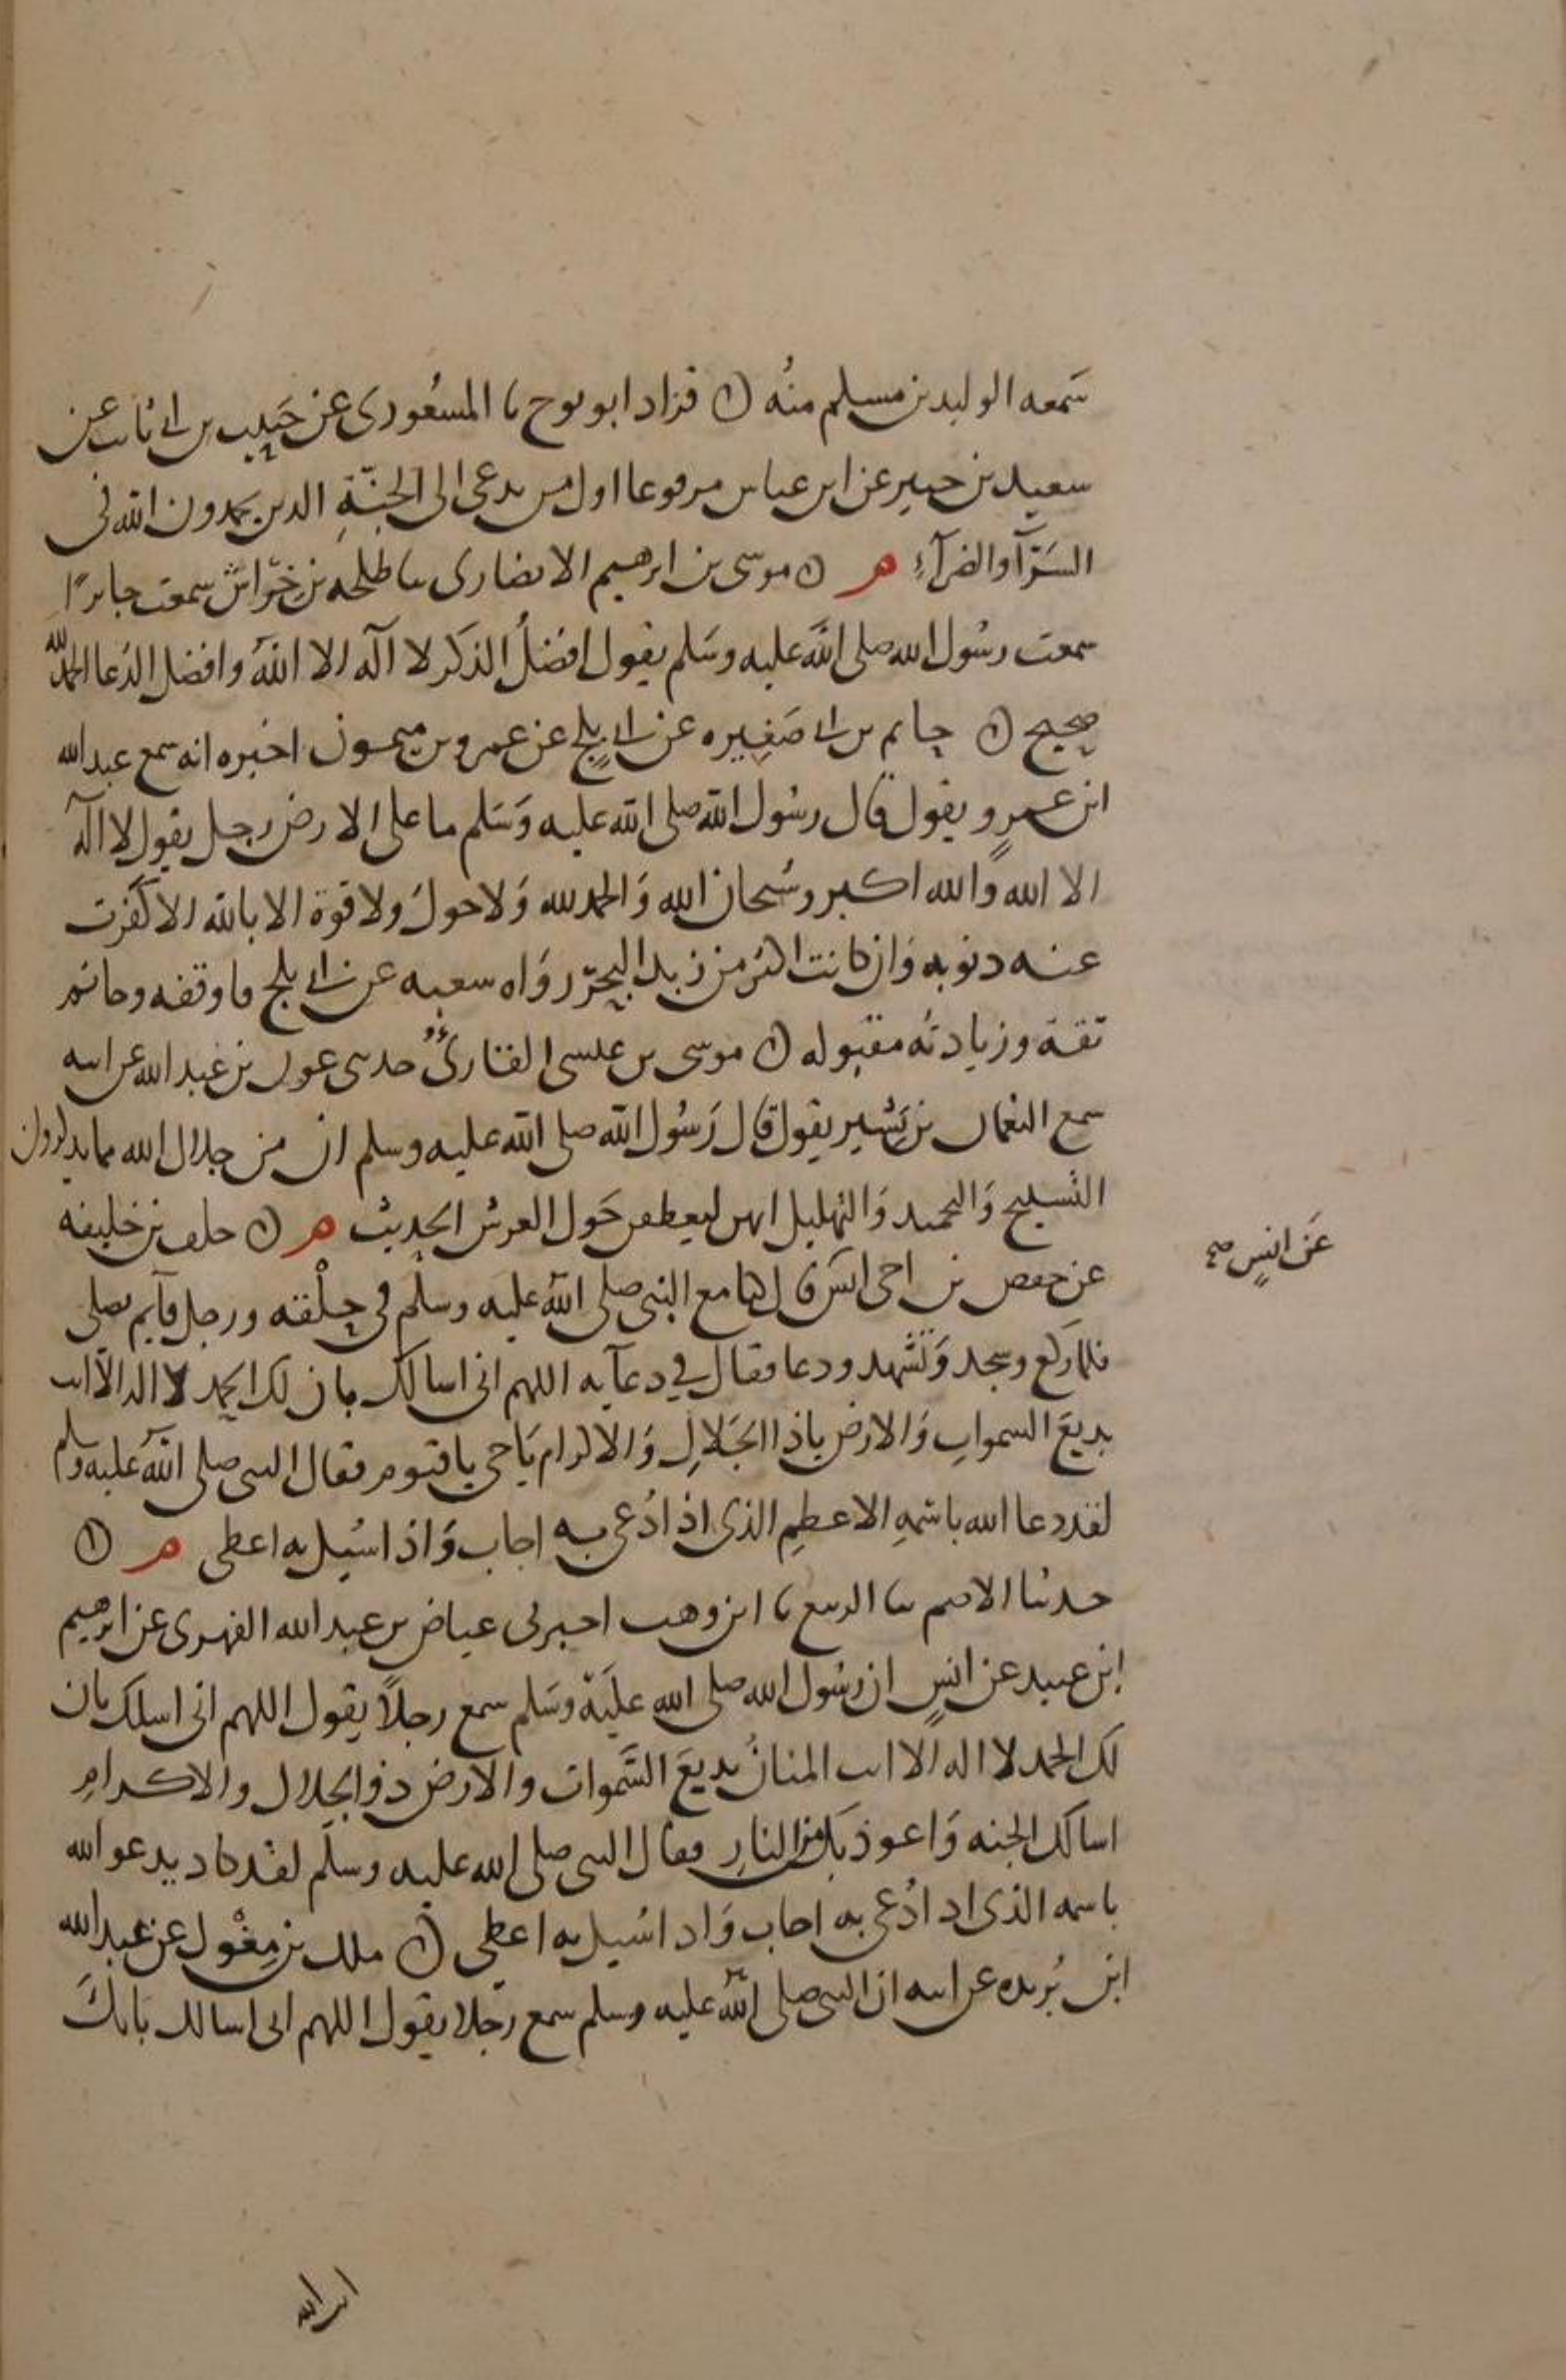 سَمعه الوليد بن مسلم منُه ۞ قراد ابو نوح ثا المسعُودى عن حَبيب بن ابى ثابت عن
سعيد بن جبير عن ابن عباس مرفوعا اول من يدعى الى الجنّةِ الذين يحمدون الله فى
السَرَّآ والضرآءِ م ۞ موسى بن ابرهيم الانصارى ثنا طلحه بن خِرّاش سمعت جابرًا
سمعت رسُول الله صلى الله عليه وسَلم يقول افضلُ الذكر لا اله الا اللهُ وافضل الدُعا الحمد لله
صحيح ۞ حاتم بن ابى صَغِيره عن ابى بلجٍ عن عمرو بن ميمون اخبره انه سمع عبد الله
ابن عمرٍو يقول قال رسُول الله صلى الله عليه وَسَلم ما على الارض رجل يقول لا اله
الا الله والله اكبر وسُبحان الله وَالحمد لله وَلا حولَ ولا قوة الا بالله الا كفرت
عنه ذنوبه وَان كانت اكثر من زبد البحر رَوَاه شعبه عن ابى بلج فاوقفه وحاتم
ثقة وزيادتُه مقبوله ۞ موسى بن عيسى القارئُ حدثنى عون بن عَبد الله عن ابيه
سمع النعمان بن بَشير يقول قال رَسُول الله صلى الله عليه وسلم ان من جلال الله مما يذكرون
التسبيح وَالتحميد وَالتهليل انهن ليعطفن حَول العرش الحديث م ۞ خلف بن خليفه
عن حفص بن اخى انسٍ قال كنا مع النبى صلى الله عليه وسلم فى حلْقه ورجل قآيم يصلى
فلما ركع وسجد وَتشهد ودعا فقال فى دعآيه اللهم انى اسالك بان لك الحمد لا اله الا انت
بديعَ السمواتِ وَالارض ياذا الجَلالِ وَالاكرام يَاحى ياقيوم فقال النبى صلى الله عليه وسلم
لقد دعا الله باسمهِ الاعظمِ الذى اذا دُعى به اجاب وَاذا سُيل به اعطى م ۞
حدثنا الاصم ثنا الربيع ثا ابن وهب اخبرنى عياض بن عبد الله الفهرى عن ابرهيم
ابن عبيد عن انسٍ ان رسُول الله صلى الله عليَه وسَلم سمع رجلاً يقول اللهم انى اسلك بان
لك الحمد لا اله الا انت المنانُ بديعَ السَّموات والارض ذو الجلال والاكرامِ
اسالك الجنه وَاعوذ بكَ من النارِ فقال النبى صلى الله عليه وسلم لقد كاد يدعو الله
باسمه الذى اذا دُعى به اجاب وَاذا سُيل به اعطى ۞ ملك بن مِغْول عن عَبد الله
ابن بُريده عن ابيه ان النبى صلى الله عليه وسلم سمع رَجلا يقول اللهم انى اسالك بانكَ
عَن انسٍ صح
انت الله